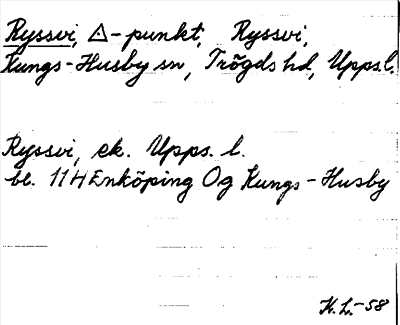 Ryssvi, △-punkt, Ryssvi,
Kungs-Husby sn, Trögds hd, Uppsl.
Ryssvi, ek. Upps. l.
bl. 11H Enköping Og Kungs-Husby
H.L.-58